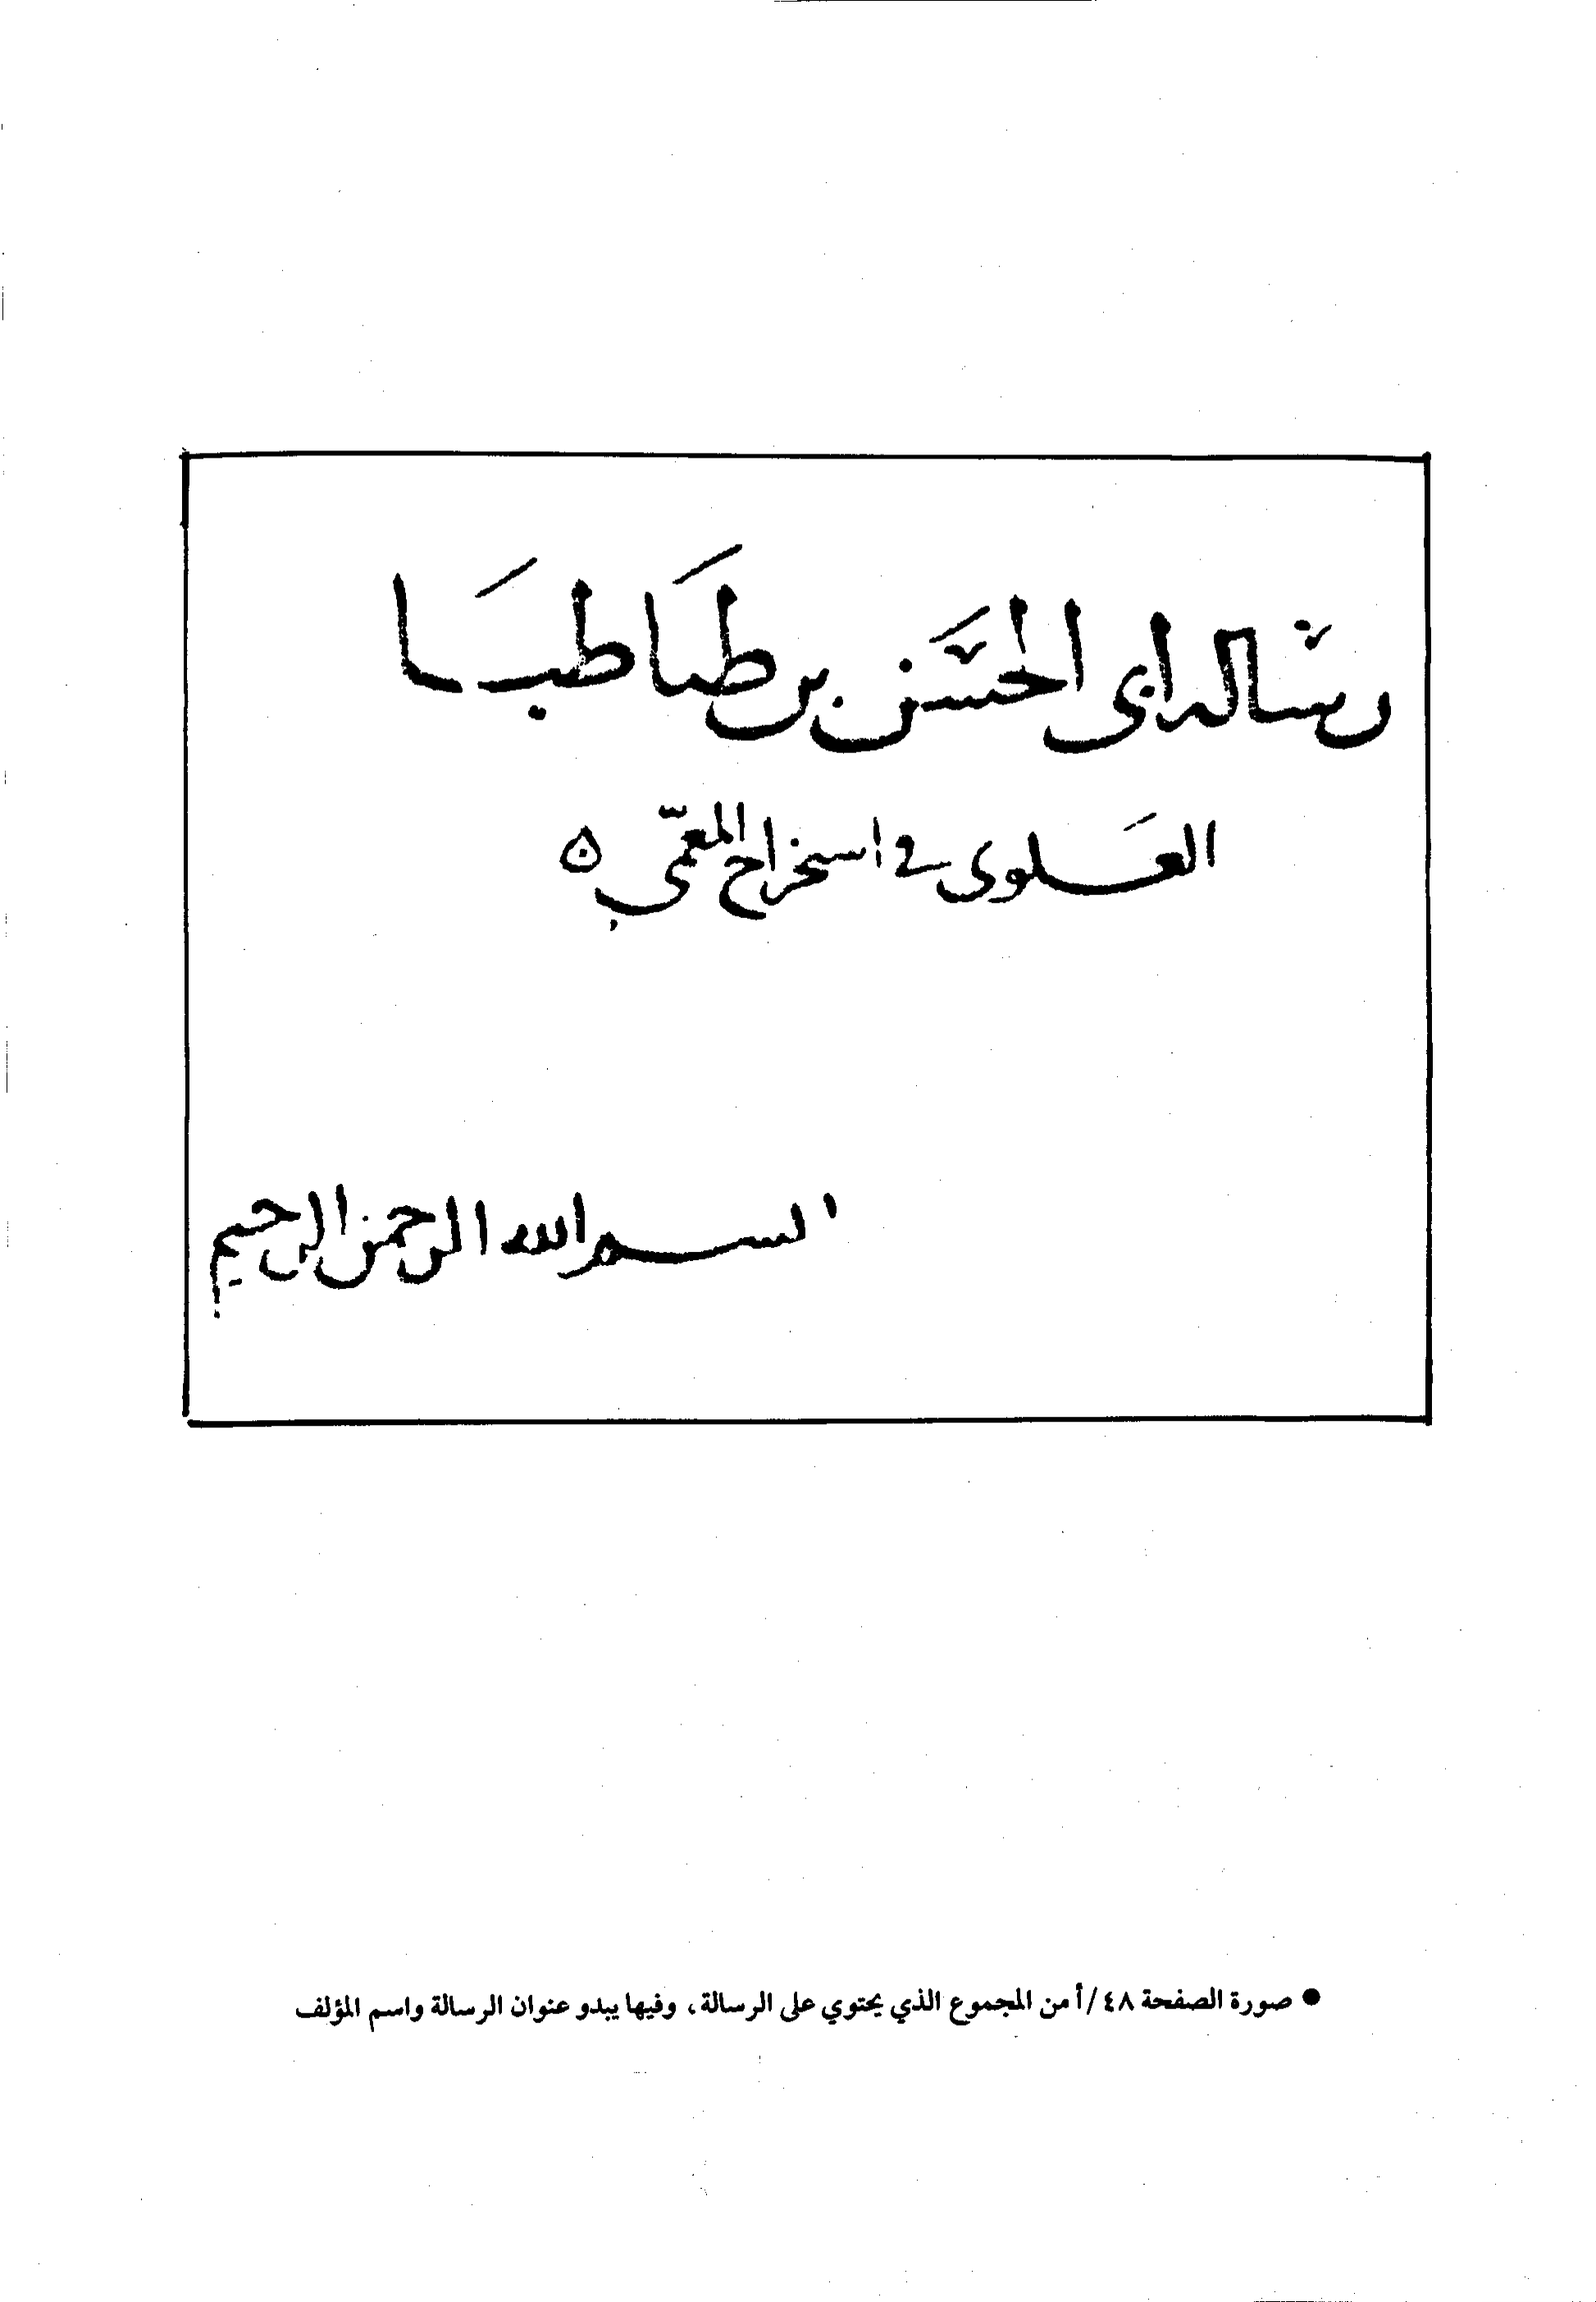 رساله ابى الحسن بن طباطبا
العلوى فى استخراج المعمى ه
بسم الله الرحمن الرحيم
● صورة الصفحة ٤٨/أ من المجموع الذي يحتوي على الرسالة، وفيها يبدو عنوان الرسالة واسم المؤلف